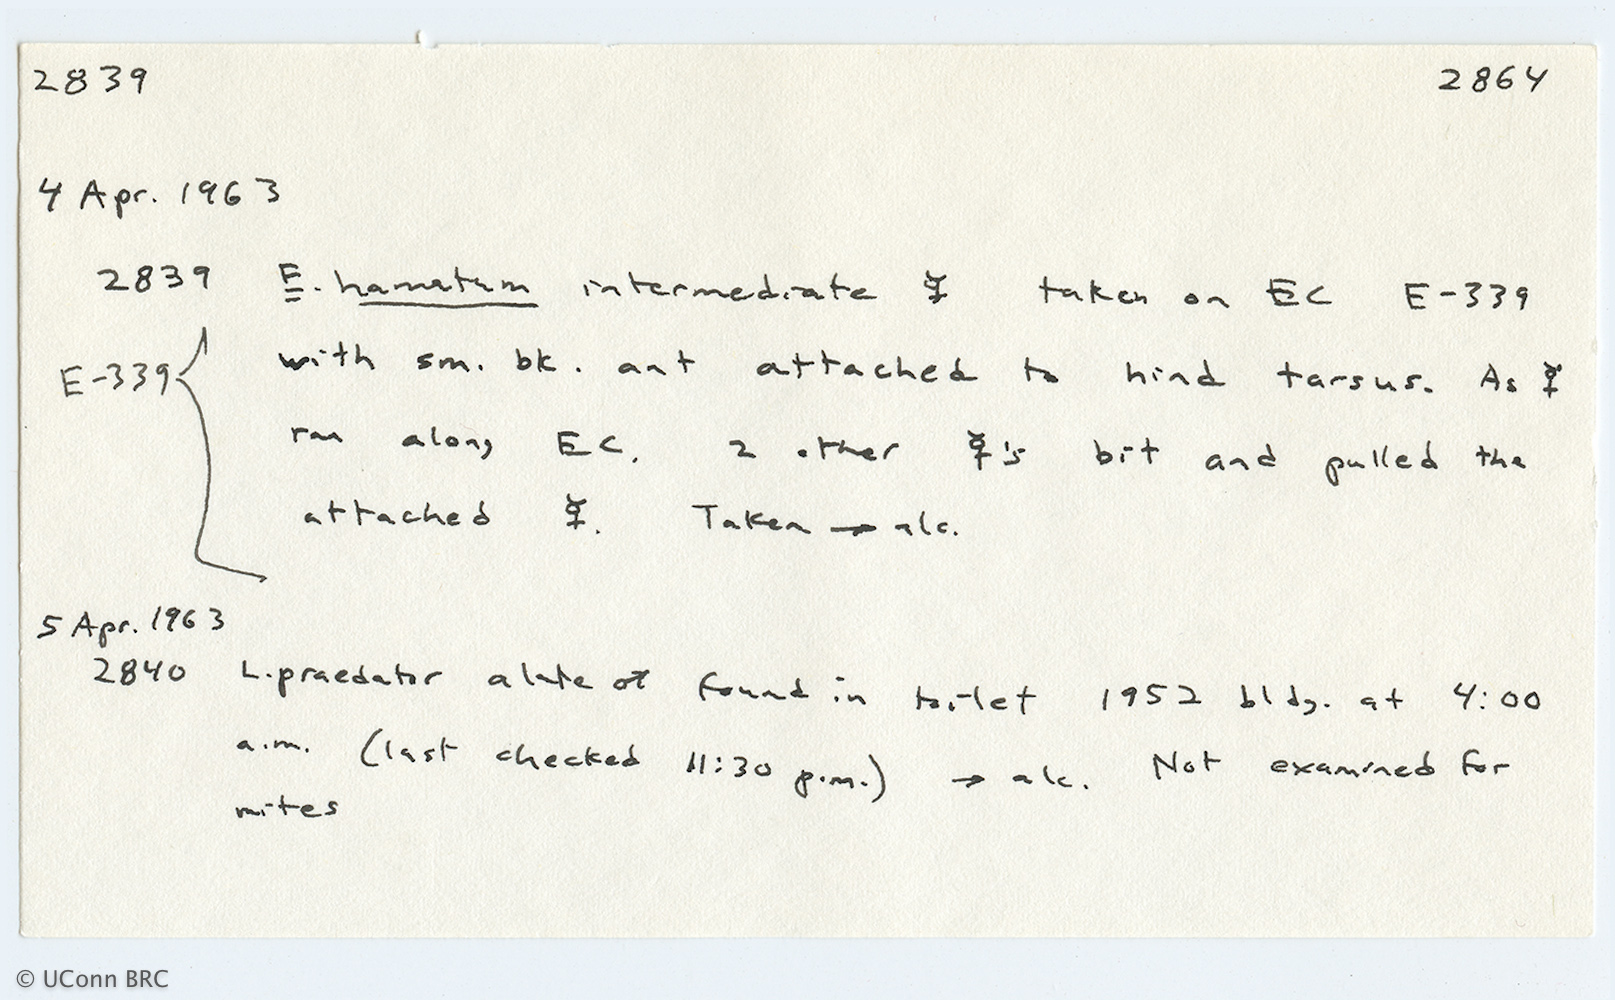 2839 2864
4 Apr. 1963
2839 E. hamatum intermediate ☿ taken on EC E-339
E-339 with sm. bk. ant attached to hind tarsus. As ☿
ran along EC, 2 other ☿'s bit and pulled the
attached ☿. Taken → alc.
5 Apr. 1963
2840 L. praedator alate ♂ found in toilet 1952 bldg. at 4:00
a.m. (last checked 11:30 p.m.) → alc. Not examined for
mites
© UConn BRC